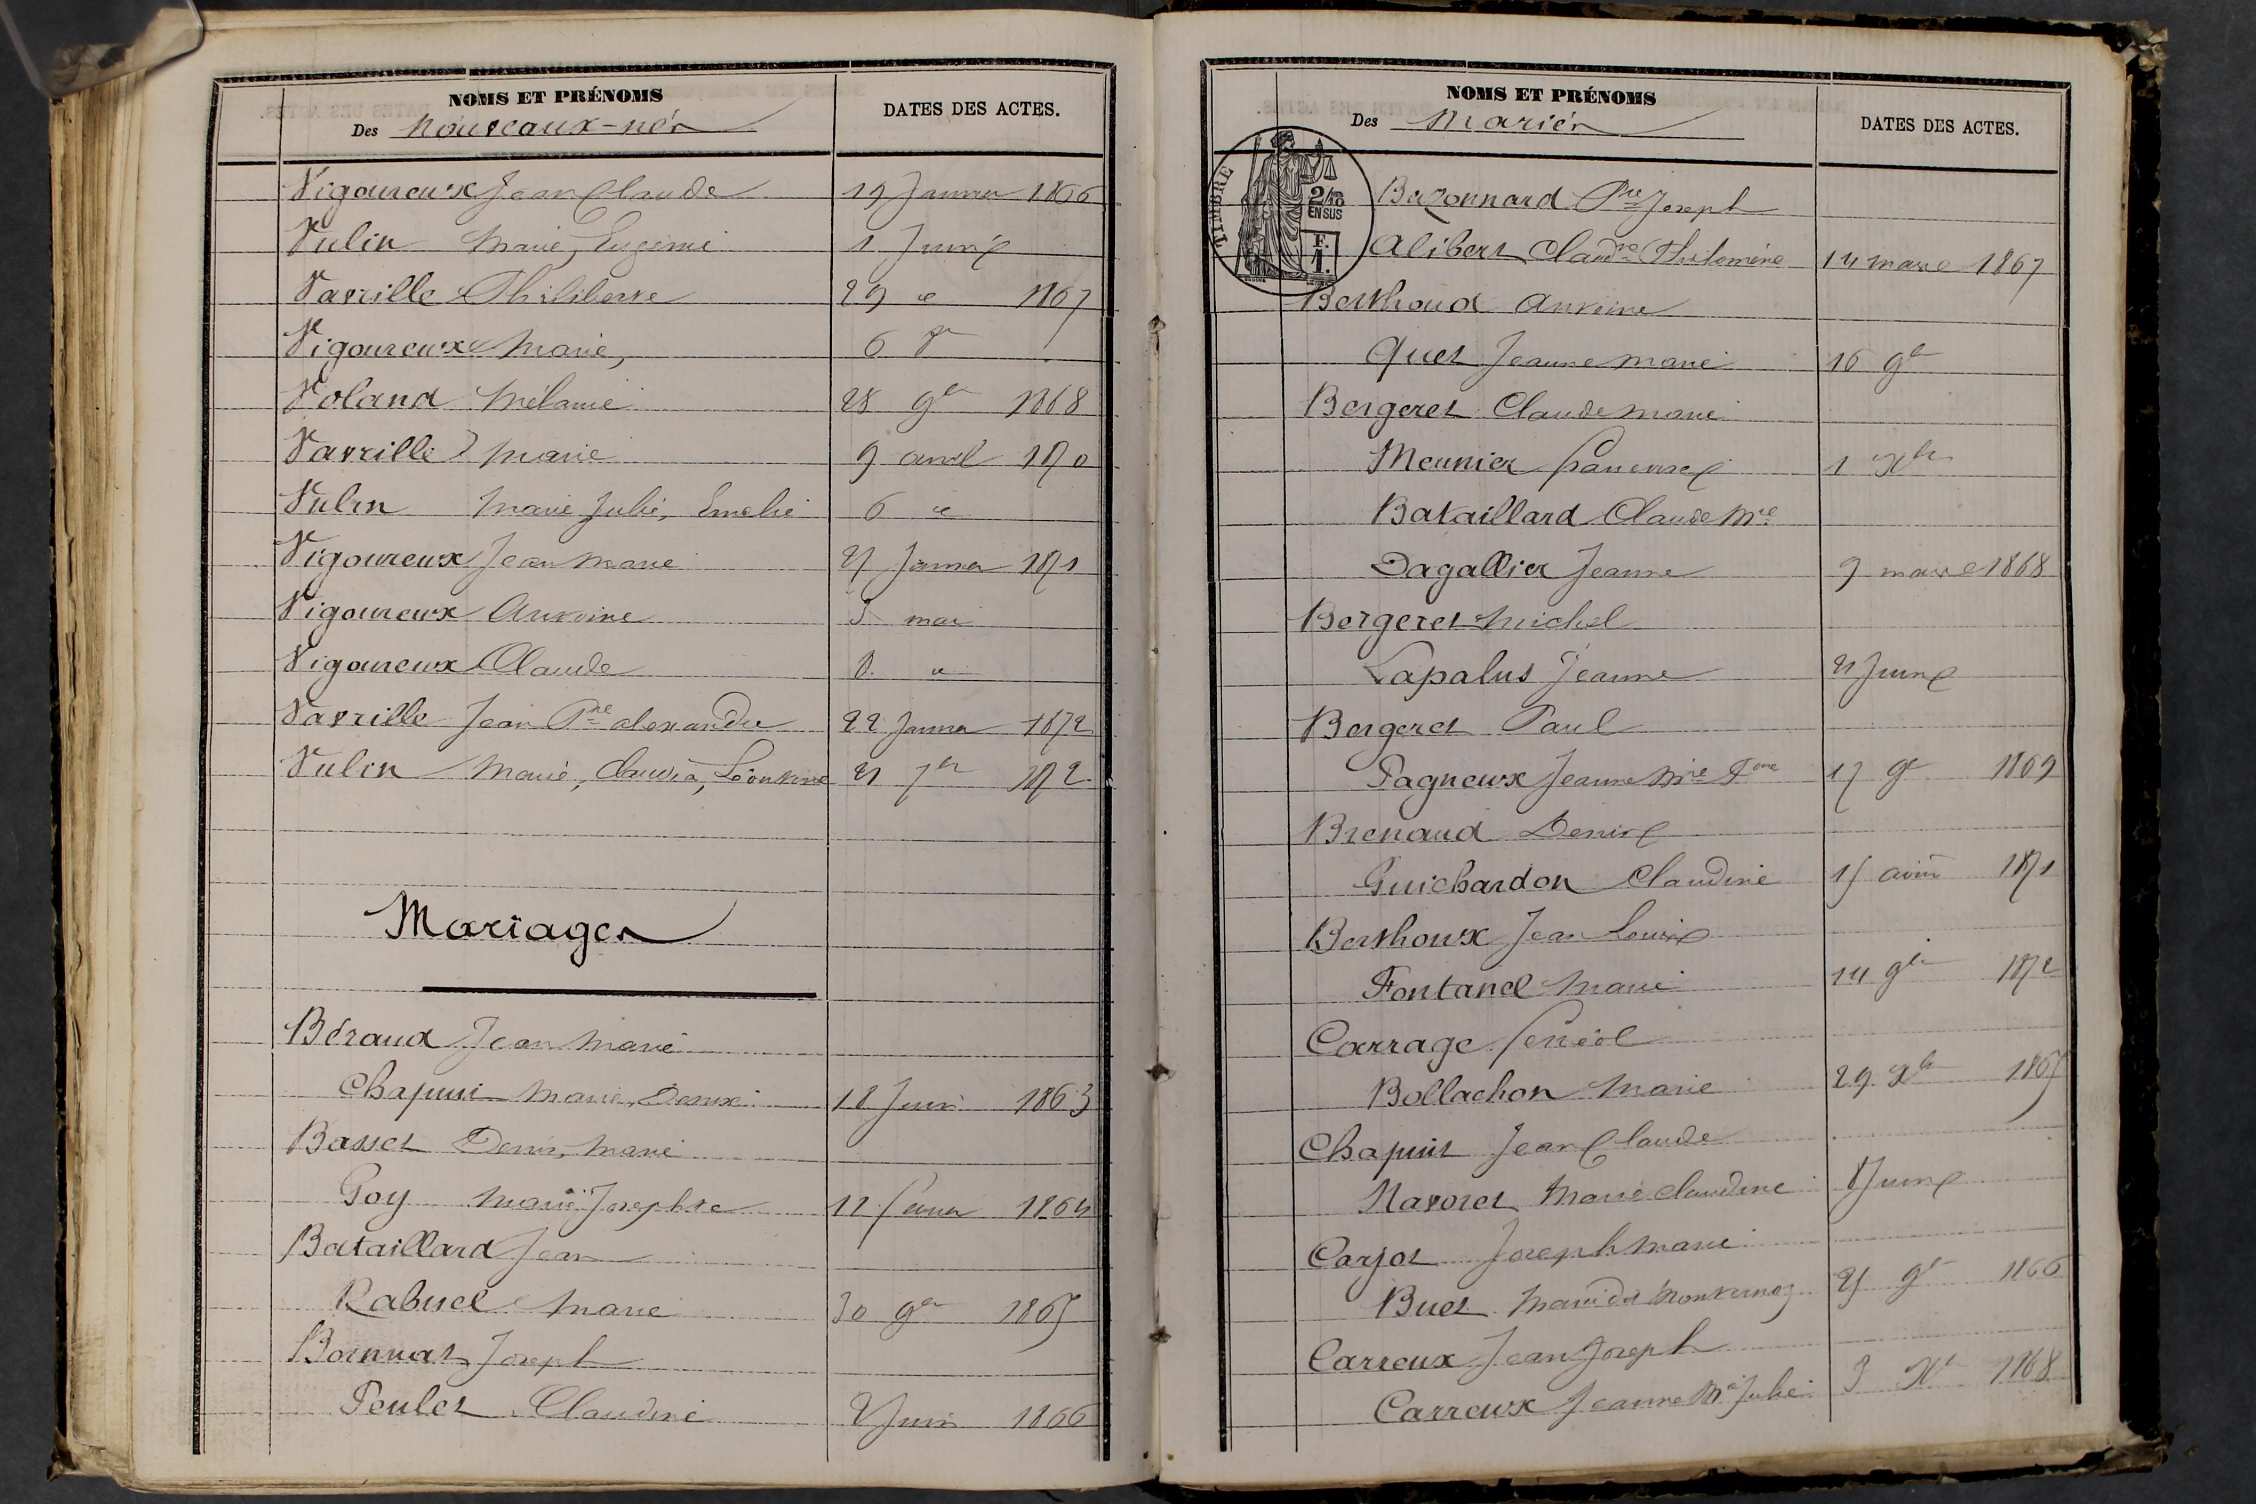 NOMS ET PRÉNOMS
Des Nouveaux-nés
DATES DES ACTES.
Vigoureux Jean Claude 19 Janvier 1866
Vulin Marie, Eugénie 1 Juin
Vavrille Philiberte 29 " 1867
Vigoureux Marie, 6
Voland Mélanie 28 9bre 1868
Vavrille Marie 9 avril 1870
Vulin Marie Julie, Emelie 6 "
Vigoureux Jean Marie 27 Janvier 1871
Vigoureux Antoine 5 mai
Vigoureux Claude 8 "
Vavrille Jean Pre alexandre 22 Janvier 1872
Vulin Marie, Claudia, Léontine 21 7bre 1872
Mariages
Béraud Jean Marie
Chapuis Marie, Denise 18 Juin 1863
Basset Denis, Marie
Goy Marie Josephte 12 février 1864
Bataillard Jean
Rabuel Marie 30 9bre 1865
Bornuat Joseph
Peulet Claudine 2 Juin 1866
NOMS ET PRÉNOMS
Des Mariés
DATES DES ACTES.
TIMBRE
2/10
EN SUS
F.
1.
Bazonnard Pre Joseph
Alibert Claudne Philomène 14 mars 1867
Berthoud Antoine
Quet Jeanne Marie 16 9bre
Bergeret Claude Marie
Meunier françoise 1 Xbre
Bataillard Claude Mie
Dagallier Jeanne 9 mars 1868
Bergeret Michel
Lapalus Jeanne 21 Juin
Bergeret Paul
Pagneux Jeanne Mie 17 9bre 1869
Brenaud Denis
Guichardon Claudine 15 avril 1871
Berthoux Jean Louis
Fontanel Marie 14 9bre 1872
Carrage ferréol
Bollachon Marie 29 Xbre 1865
Chapuis Jean Claude
Navoret Marie Claudine 8 Juin
Carjot Joseph Marie
Buet Marie du Monternoz 25 9bre 1866
Carreux Jean Joseph
Carreux Jeanne Mie Julie 3 Xbre 1868